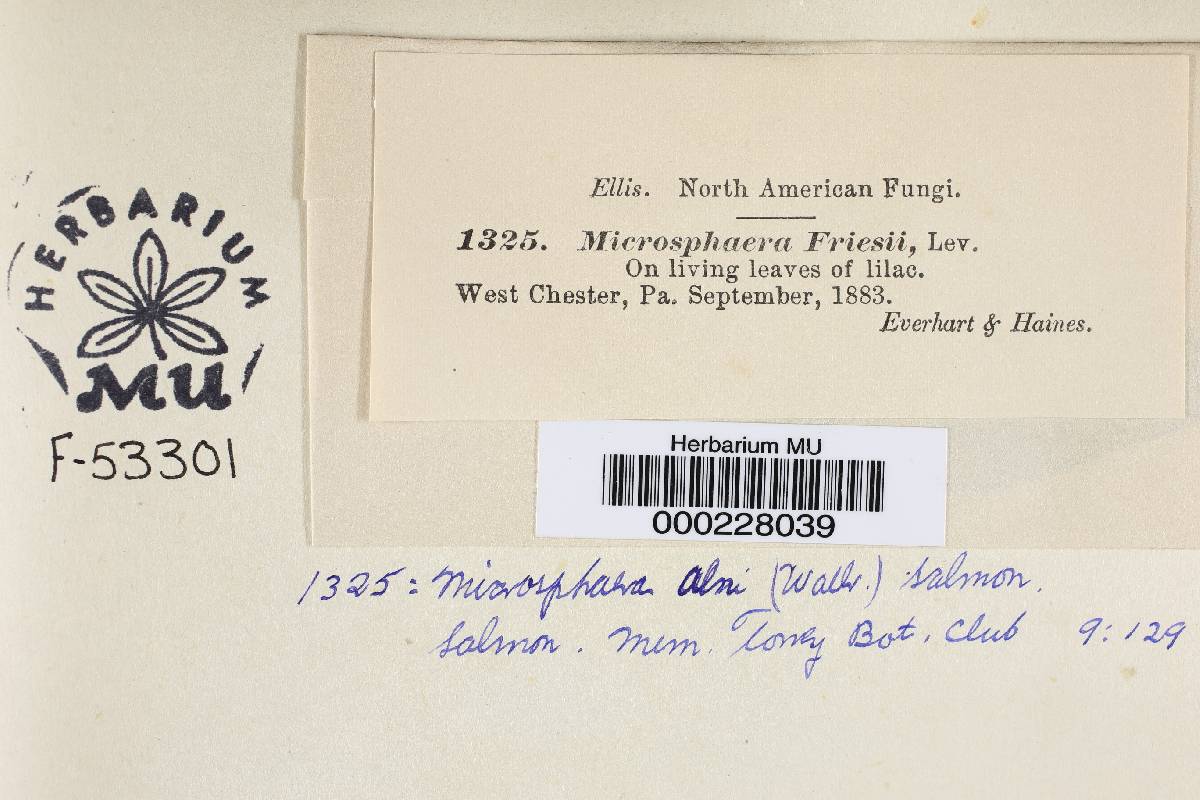 HERBARIUM
MU
F-53301
Ellis. North American Fungi.
1325. Microsphaera Friesii, Lev.
On living leaves of lilac.
West Chester, Pa. September, 1883.
Everhart & Haines.
Herbarium MU
000228039
1325 = Microsphaera Alni (Wallr.) Salmon.
Salmon. Mem. Torrey Bot. Club 9:129